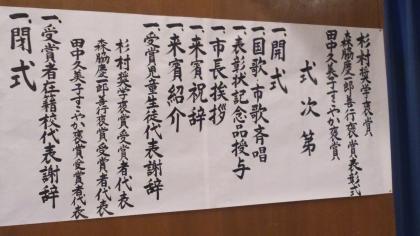 杉村奨学褒賞
森脇慶一郎善行褒賞表彰式
田中久美子すこやか褒賞
式次第
一、開式
一、国歌・市歌斉唱
一、表彰状記念品授与
一、市長挨拶
一、来賓祝辞
一、来賓紹介
一、受賞児童生徒代表謝辞
杉村奨学褒賞受賞者代表
森脇慶一郎善行褒賞受賞者代表
田中久美子すこやか褒賞受賞者代表
一、受賞者在籍校代表謝辞
一、閉式